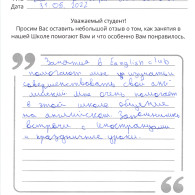 Дата 31.08.2022
Уважаемый студент!
Просим Вас оставить небольшой отзыв о том, как занятия в
нашей Школе помогают Вам и что особенно Вам понравилось.
Занятия в English club
помогают мне
совершенствовать свой анг-
лийский мне очень помогает
в этой школе общение
на английском Запомнились
встречи с иностранцами
и праздничные уроки